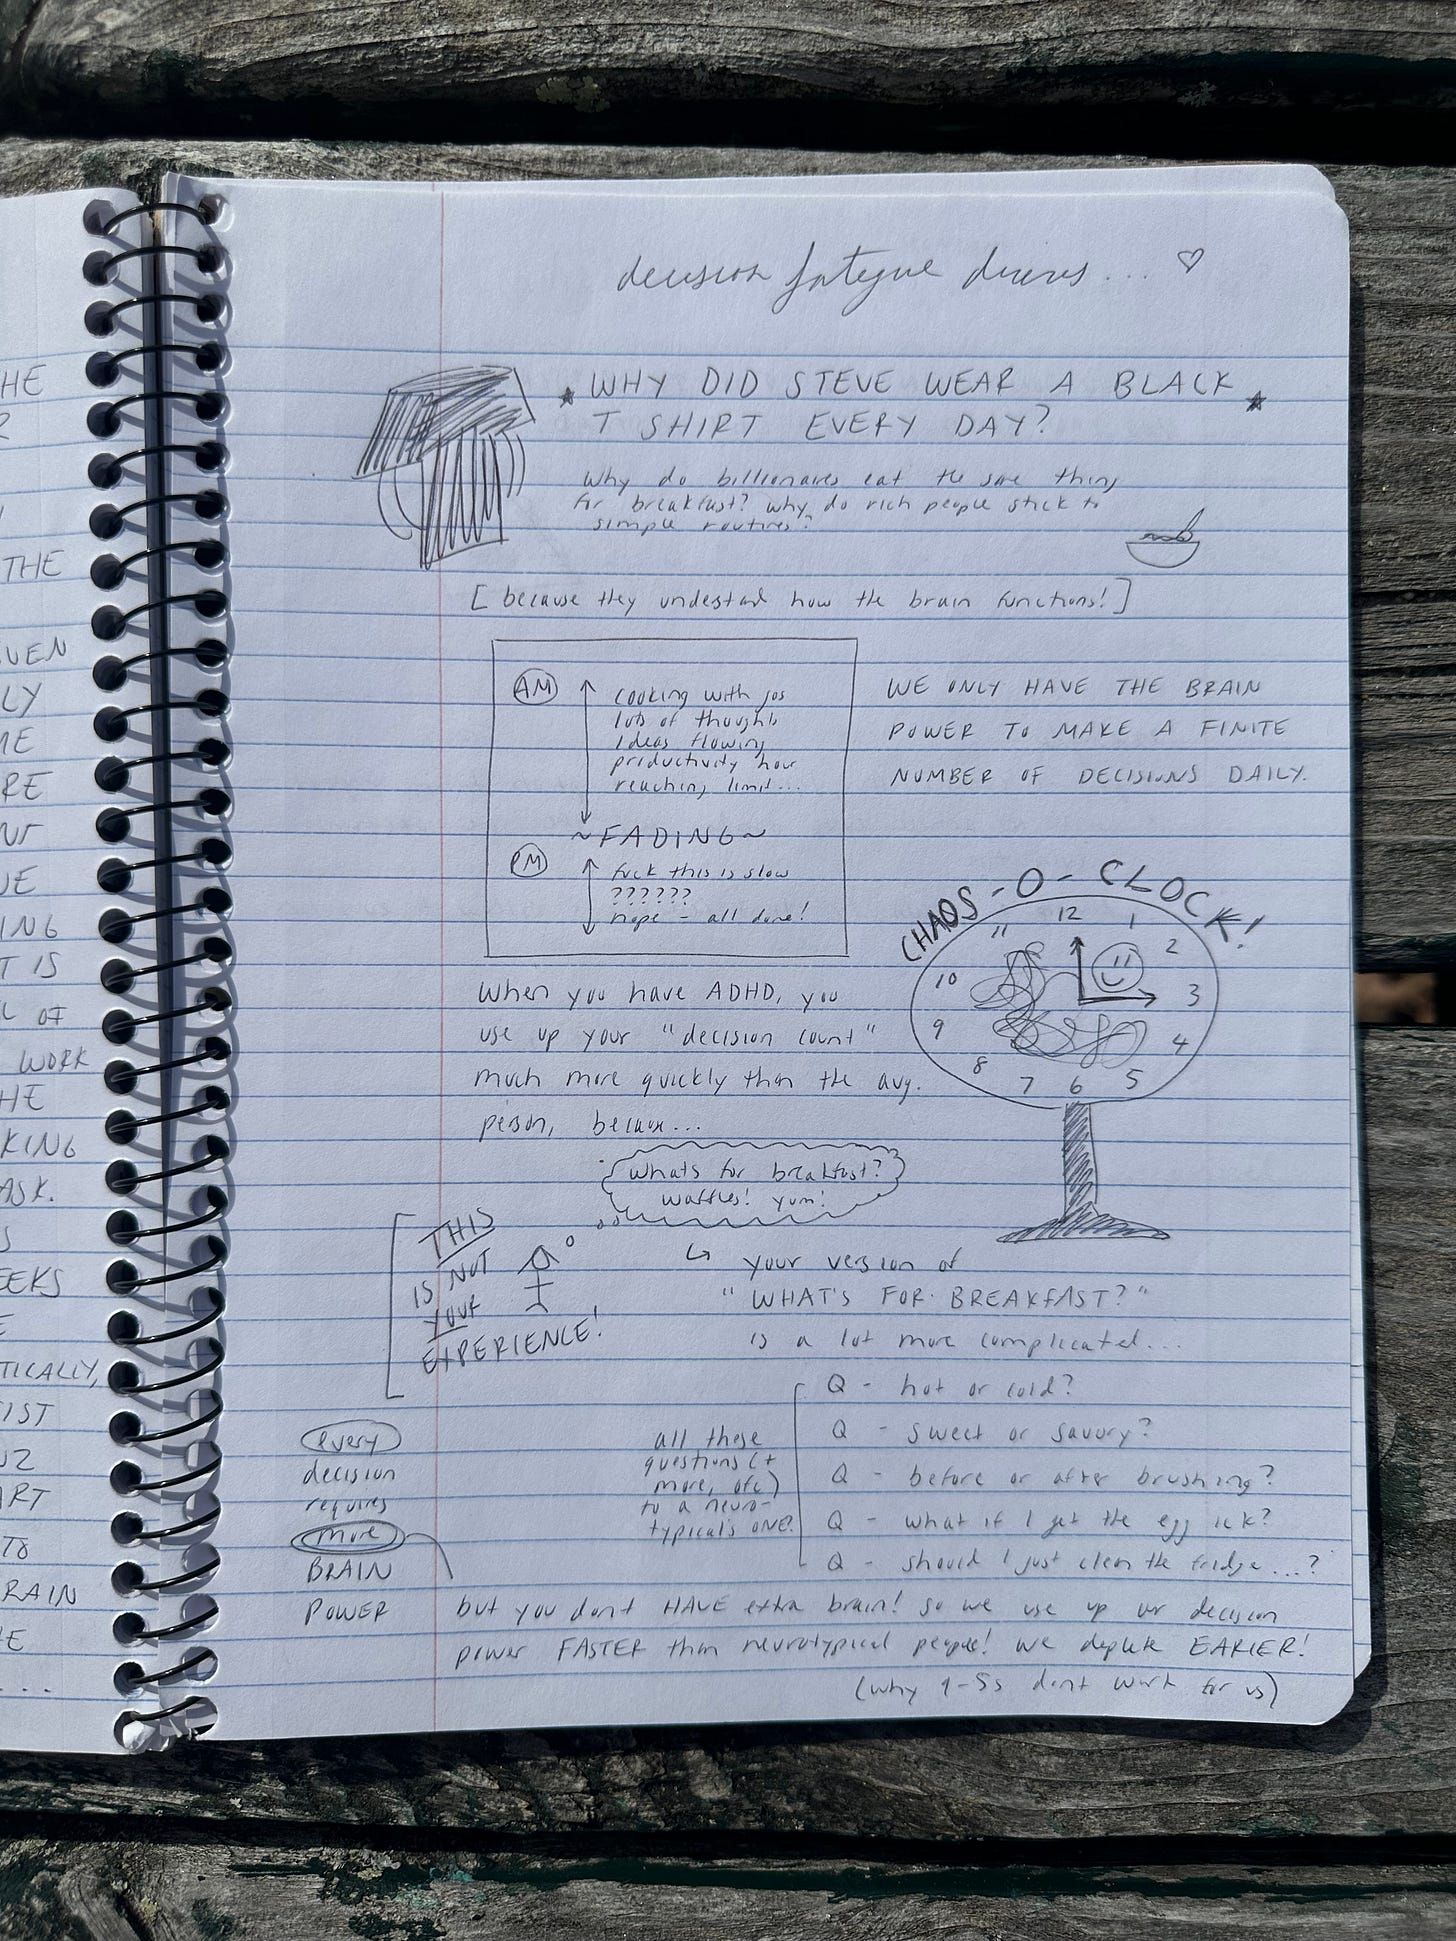 HE
R
THE
VEN
LY
ME
RE
UE
ING
T IS
L OF
WORK
HE
KING
ASK.
S
EEKS
E
TICALLY,
IST
UZ
ART
TO
RAIN
HE
...
decision fatigue ... ♡
★ WHY DID STEVE WEAR A BLACK ★
T SHIRT EVERY DAY?
Why do billionaires eat the same thing
for breakfast? why do rich people stick to
simple routines?
[because they understand how the brain functions!]
AM
cooking with gas
lots of thoughts
Ideas flowing
productivity hour
reaching limit...
~FADING~
PM
fuck this is slow
??????
nope - all done!
WE ONLY HAVE THE BRAIN
POWER TO MAKE A FINITE
NUMBER OF DECISIONS DAILY.
CHAOS-O-CLOCK!
12
1
2
3
4
5
6
7
8
9
10
11
When you have ADHD, you
use up your "decision count"
much more quickly than the avg.
person, because...
Whats for breakfast?
waffles! yum!
THIS
IS NOT
YOUR
EXPERIENCE!
↳ your version of
"WHAT'S FOR BREAKFAST?"
is a lot more complicated...
Q - hot or cold?
Q - sweet or savory?
Q - before or after brushing?
Q - what if I get the egg ick?
Q - should I just clean the fridge...?
all these
questions (+
more, ofc)
to a neuro-
typical's ONE?
every
decision
requires
more
BRAIN
POWER
but you dont HAVE extra brain! so we use up our decision
power FASTER than neurotypical people! we deplete EARIER!
(why 9-5s dont work for us)